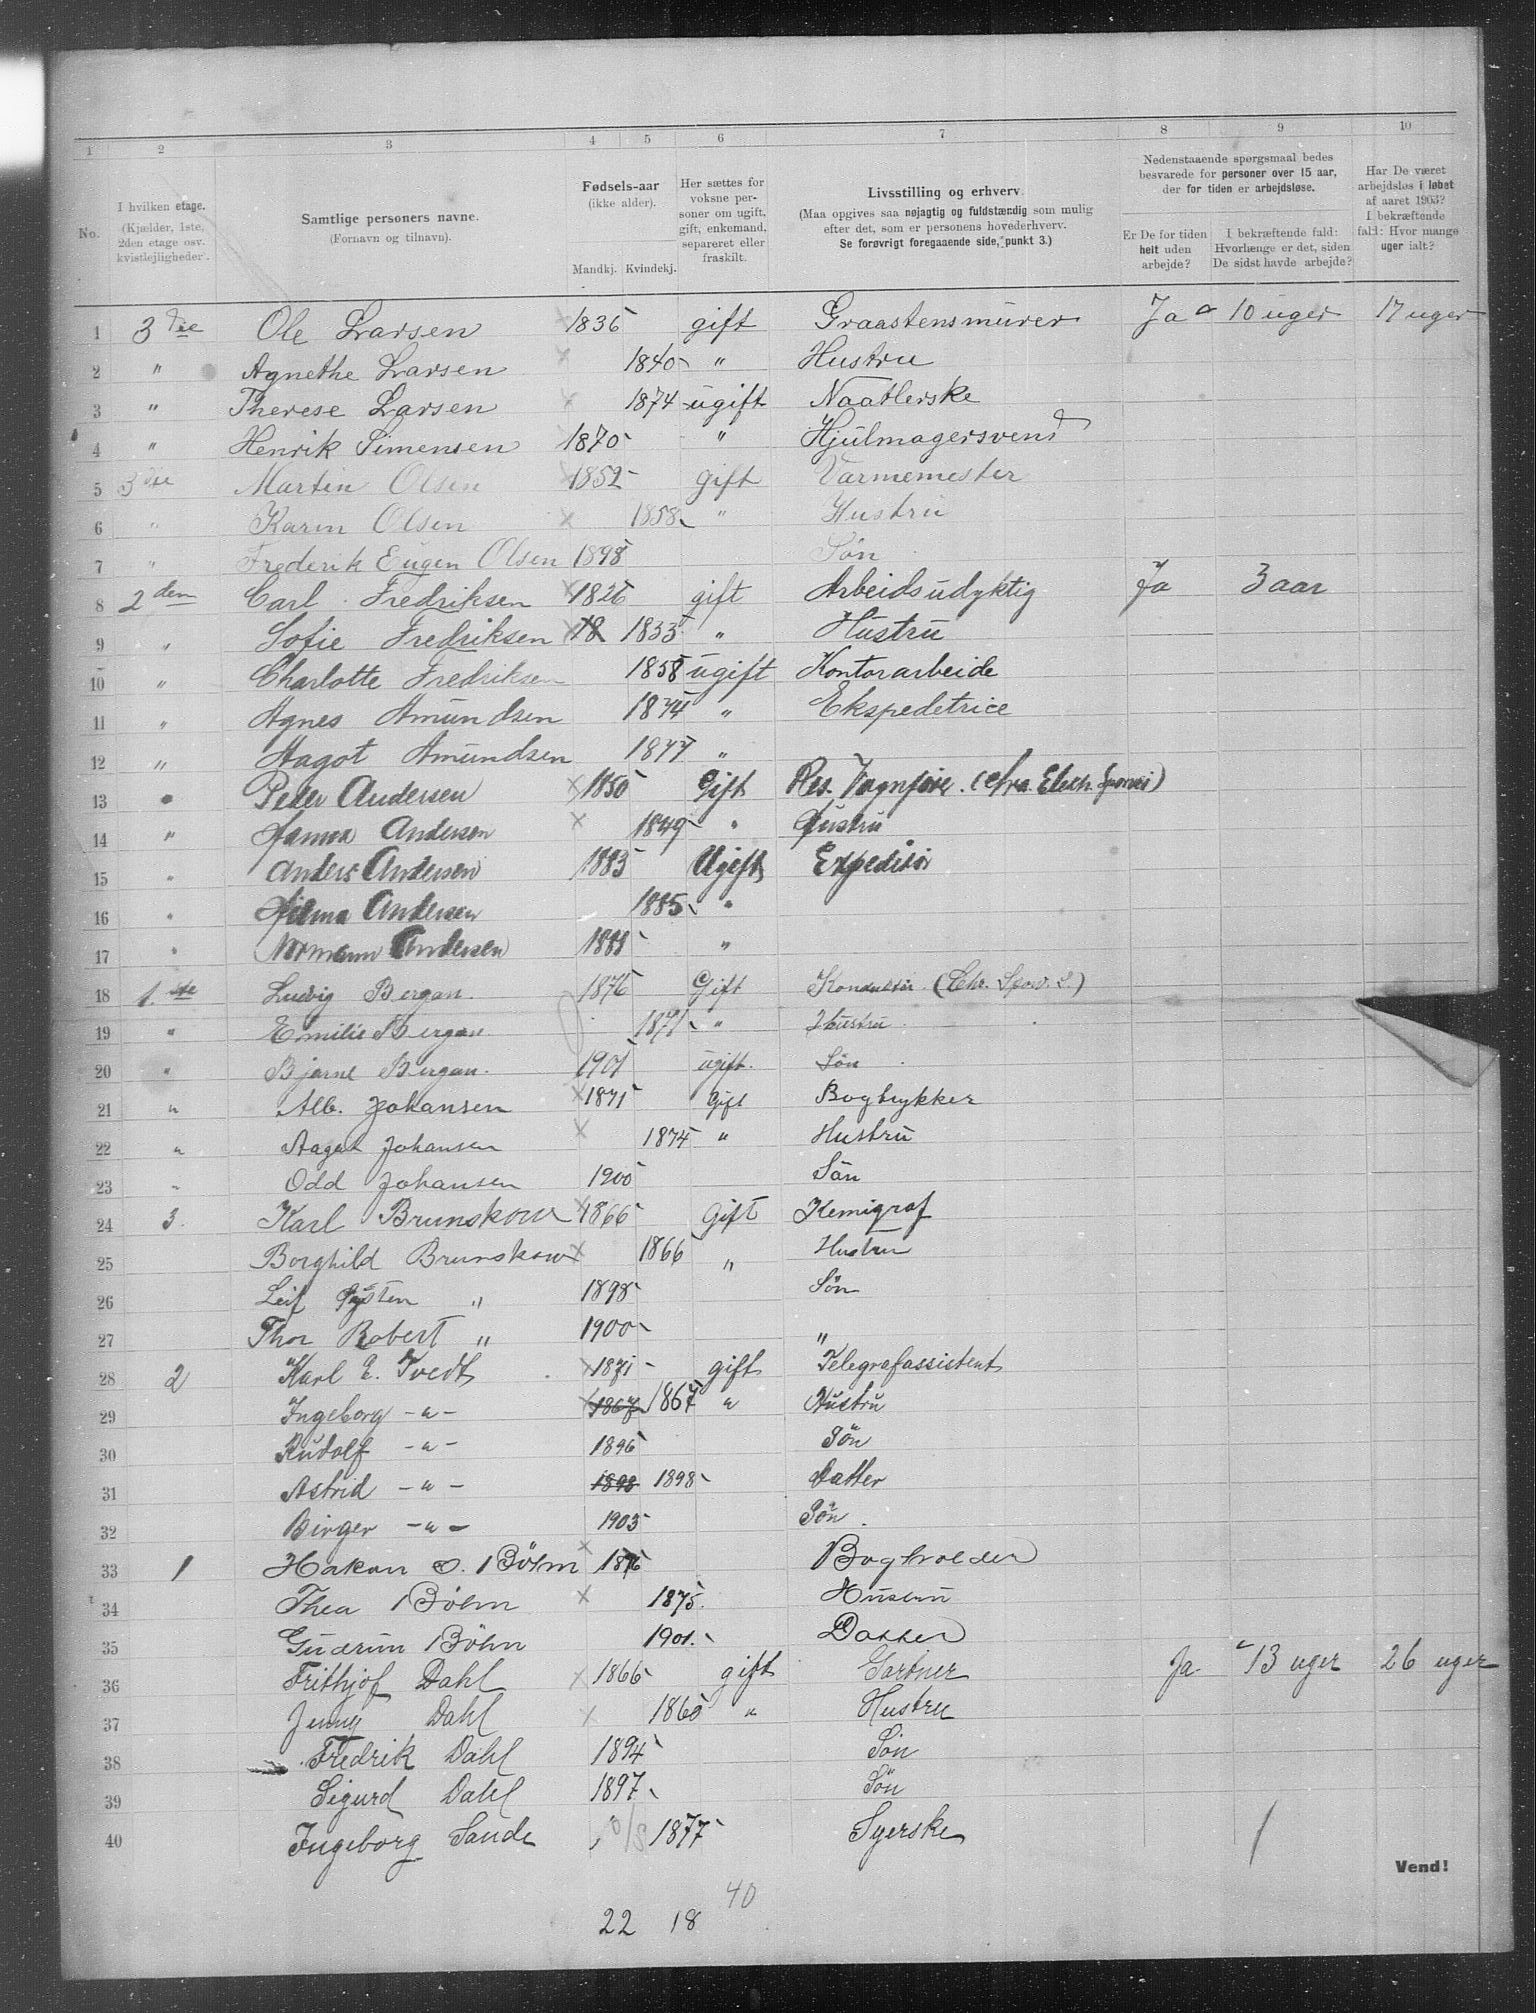 1 2 3 4 5 6 7 8 9 10
No.
I hvilken etage. (Kjælder, 1ste, 2den etage osv. kvistlejligheder.
Samtlige personers navne. (Fornavn og tilnavn).
Fødsels-aar (ikke alder). Mandkj. Kvindekj.
Her sættes for voksne personer om ugift, gift, enkemand, separeret eller fraskilt.
Livsstilling og erhverv. (Maa opgives saa nøjagtig og fuldstændig som mulig efter det, som er personens hovederhverv. Se forøvrigt foregaaende side, punkt 3.)
Nedenstaaende spørgsmaal bedes besvarede for personer over 15 aar, der for tiden er arbejdsløse.
Er De for tiden helt uden arbejde?
I bekræftende fald: Hvorlænge er det, siden De sidst havde arbejde?
Har De været arbejdsløs i løbet af aaret 1903? I bekræftende fald: Hvor mange uger ialt?
1 3die Ole Larsen 1836 gift Graastensmurer Ja 10 uger 17 uger
2 " Agnethe Larsen 1840 " Hustru
3 " Therese Larsen 1874 ugift Naatlerske
4 " Henrik Simensen 1870 " Hjulmagersvend
5 3die Martin Olsen 1852 gift Varmemester
6 " Karen Olsen 1858 " Hustru
7 " Frederik Eugen Olsen 1898 Søn
8 2den Carl Fredriksen 1826 gift Arbeidsudyktig Ja 3 aar
9 " Sofie Fredriksen 18 1833 " Hustru
10 " Charlotte Fredriksen 1858 ugift Kontorarbeide
11 " Agnes Amundsen 1874 " Ekspedetrice
12 " Hagot Amundsen 1877 "
13 " Peder Andersen 1850 Gift Res. Vognfører.
14 " Hanna Andersen 1849 " Hustru
15 " Anders Andersen 1883 Ugift Expeditør
16 " Hilma Andersen 1885 "
17 " Normann Andersen 1888 "
18 1.ste Ludvig Bergan. 1876 Gift Konduktør (Chr. Sporv. S.)
19 " Emilie Bergan. 1871 " Hustru
20 " Bjarne Bergan. 1901 ugift. Søn
21 " Alb. Johansen 1871 Gift Bogtrykker
22 " Aagot Johansen 1874 " Hustru
23 " Odd Johansen 1900 Sön
24 3. Karl Brunskow 1866 Gift Kemigraf
25 Borghild Brunskow 1866 " Hustru
26 Leif Øysten " 1898 Sön
27 Thor Robert " 1900 "
28 2 Karl E. Tvedt 1871 gift Telegrafassistent
29 Ingeborg -"- 1867 1867 " Hustru
30 Rudolf -"- 1896 Søn
31 Astrid -"- 1898 1898 Datter
32 Birger -"- 1903 Søn.
33 1 Hakon O. Böhm 1876 Bogholder
34 Thea Böhm 1875. Hustru
35 Gudrun Böhm 1901. Datter
36 Frithjof Dahl 1866 gift Gartner Ja. 13 uger 26 uger
37 Jenny Dahl 1865 " Hustru
38 Fredrik Dahl 1894 Sön
39 Sigurd Dahl 1897 Sön
40 Ingeborg Sande 1877 Syerske
Vend!
40
22 18